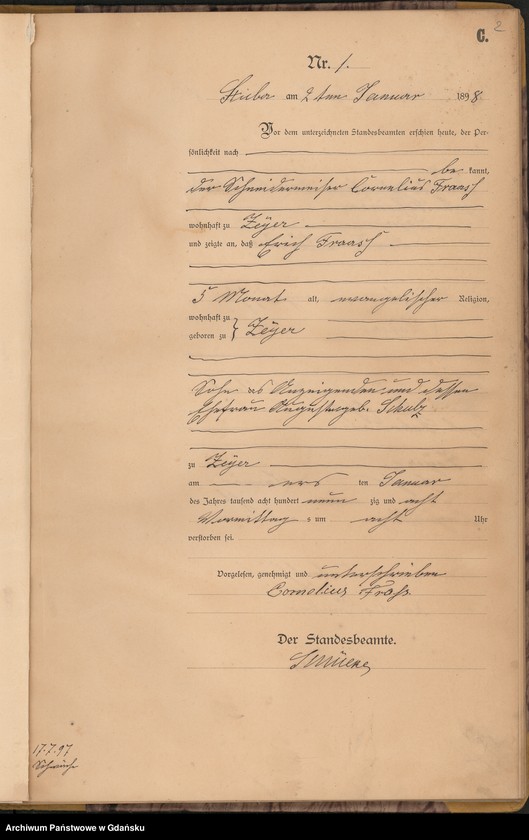 C. 2
Nr. 1.
Stuba am 2ten Januar 1898
Vor dem unterzeichneten Standesbeamten erschien heute, der Per-
sönlichkeit nach
be kannt,
der Schneidermeister Cornelius Fraass
wohnhaft zu Zeyer
und zeigte an, daß Erich Fraass
5 Monat alt, evangelischer Religion,
wohnhaft zu
geboren zu } Zeyer
Sohn des Anzeigenden und dessen
Ehefrau Auguste geb. Schulz
zu Zeyer
am ers ten Januar
des Jahres tausend acht hundert neun zig und acht
Vormittag s um acht Uhr
verstorben sei.
Vorgelesen, genehmigt und unterschrieben
Cornelius Frass
Der Standesbeamte.
17.7.97
Archiwum Państwowe w Gdańsku